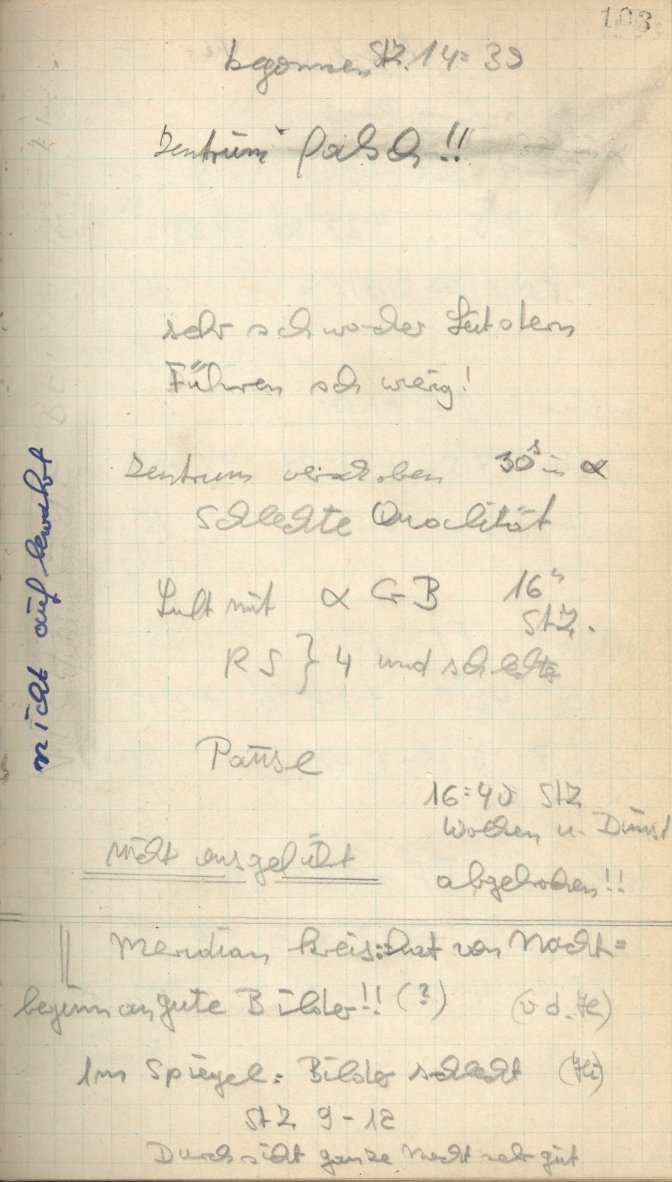 103
begonnen StZ. 14=39
Zentrum falsch!!
sehr schwacher Leitstern
Führen schwierig!
Zentrum verschoben 30ˢ in α
Schlechte Qualität
Luft mit α GB 16ʰ
StZ.
RS } 4 und schlechte
nicht aufbewahrt
Pause
16=40 StZ
Wolken u. Dunst
nicht ausgeführt
abgebrochen!!
Meridiankreis: hat von Nacht=
beginn an gute Bilder!! (?) (v. d. He)
Im Spiegel: Bilder schlecht
StZ 9-12
Durchsicht ganze Nacht sehr gut